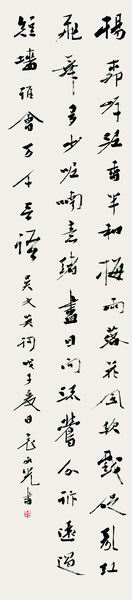 楊柳岸泥香半和梅雨落花風軟戲促亂紅
飛舞多少呢喃意緒盡日向流鶯分訴還過
短墻誰會万千言語 吳文英詞 戊子夏日 書